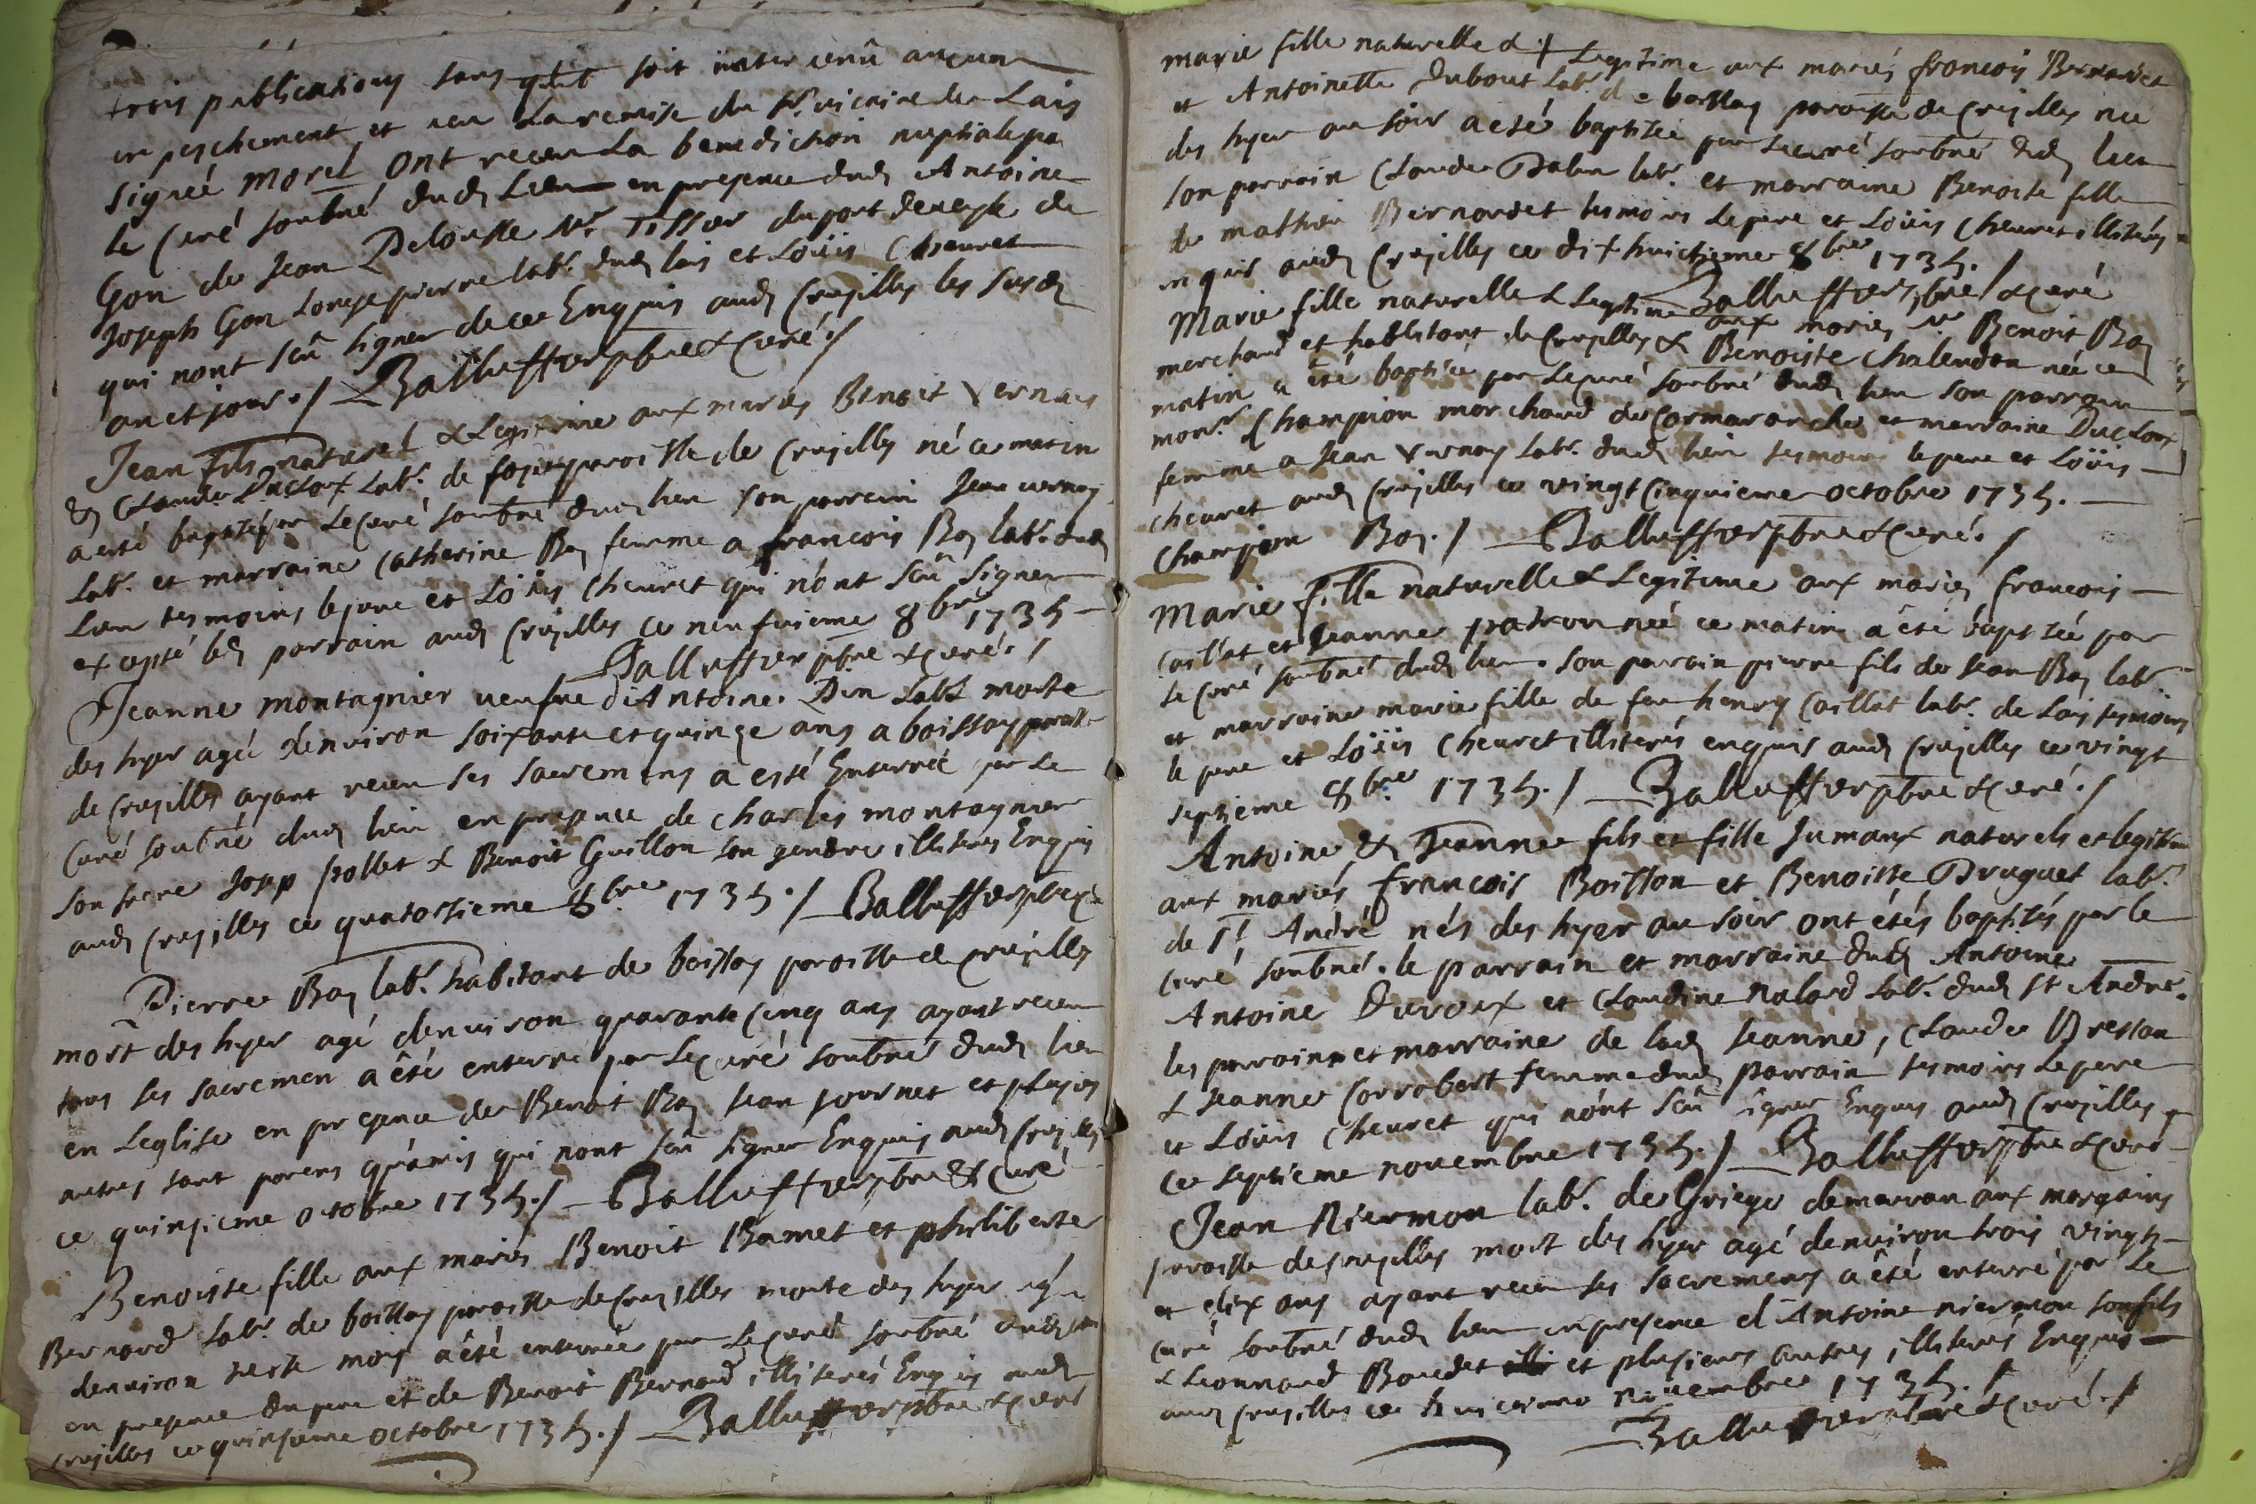 trois publications sans qu'il soit intervenû aucun
enpeschement et veu la remise du Sr. vicaire de Lais
signée Morel ont receu la benediction nuptiale par
le Curé soubné dud. Lieu en presence dud. Antoine
Gon de Jean Delouste Mr. Tissier du pont de veyle de
Joseph Gon Longepierre labr. dud. lais et Loüis Cheuret
qui nont sceû signer de ce Enquis aud. Crusilles les susd.
an et jour ./ Balluffier pbre & Curé ./
Jean fils naturel & Legitime aux mariés Benoit Vernais
& Claudine Ducloux Labr. de paroisse de Crusilles né ce matin
a esté baptisé par Le Curé soubné dud. lieu son parrain Jean vernay
Labr. et marraine Catherine Bay femme a françois Bay labr. dud.
Lieu tesmoins le pere et Loüis Cheuret qui nont sceû signer
excepté led. parrain aud. Crusilles ce neufvieme 8bre 1735
Balluffier pbre & Curé ./
Jeanne montagnier veufve d'Antoine Din Labr. morte
des hyer agée denviron soixante et quinze ans a boissay paroisse
de Crusilles ayant receu ses sacremens a esté Enterrée par Le
Curé soubné dud. lieu en presence de Charles montagnier
son frere Josep pollet & Benoit Guillon son gendre illiterés Enquis
aud. Crusilles ce quatorzieme 8bre 1735 ./ Balluffier pbre & Curé
Pierre Bay labr. habitant de boissay paroisse de Crusilles
mort des hyer agé denviron quarante cinq ans ayant receu
tous ses sacremen a êté enterré par Le Curé soubné dud. lieu
en Leglise en presence de Benoit Bay Jean journet et plusieurs
autres tant parens qu'amis qui nont sceû signer Enquis aud. Crusilles
ce quinzieme octobre 1735 ./ Balluffier pbre & Curé
Benoiste fille aux mariés Benoit Bamet et philiberte
Bernard Labr. de boissay paroisse de Crusilles morte des hyer agée
denviron mois a êté enterrée par Le Curé soubné aud. lieu
en presence du pere et de Benoit Bernard illiterés Enquis aud.
Crusilles ce quinzieme octobre 1735 ./ Balluffier pbre & Curé
marie fille naturelle & Legitime aux mariés françois Bernardet
et Antoinette Dubout Labr. de boissay paroisse de Crusilles née
des hyer au soir a esté baptisée par Le Curé soubné dud. lieu
son parrain Claude labr. et marraine Benoiste fille
de mathieu Bernardet tesmoins Le pere et Loüis Cheuret illiterés
enquis aud. Crusilles ce dixhuictieme 8bre 1735 ./
Balluffier pbre & Curé
Marie fille naturelle & Legitime aux mariés Mr. Benoit Bay
marchand et habbitant de Crusilles & Benoiste Chalendon née ce
matin a êté baptisée par Le Curé soubné dud. lieu son parrain
monr. Champion marchand de Cormaranche et marraine Ducloux
femme a Jean Vernay Labr. dud. lieu tesmoins le pere et Loüis
cheuret aud. Crusilles ce vingt Cinquieme octobre 1735.
Champion Bay ./ Balluffier pbre & Curé ./
Marie fille naturelle & Legitime aux mariés françois
Caillat et Jeanne patron née ce matin a êté baptisée par
le Curé soubné dud. lieu. son parrain pierre fils de Jean Bay labr.
et marraine marie fille de feu henry Caillat labr. de Lais tesmoins
le pere et Loüis Cheuret illiterés enquis aud. Crusilles ce vingt
septieme 8bre 1735 ./ Balluffier pbre & Curé ./
Antoine & Jeanne fils et fille Jumaux naturels et legitimes
aux mariés françois Boisson et Benoiste Druguet labr.
de St. André nés des hyer au soir ont étés baptisés par le
curé soubné. le parrain et marraine dud. Antoine
Antoine Duroux et Claudine Nalard Labr. dud. St André.
les parrain et marraine de lad. Jeanne, Claude Bresson
& Jeanne Corrobert femme dud. parrain tesmoins Le pere
et Loüis Cheuret qui nônt sceû signer Enquis aud. Crusilles
Ce septieme novembre 1735 ./ Balluffier pbre & Curé
Jean Niermon labr. de Griege demeuran aux margains
paroisse de Crusilles mort des hyer agé denviron trois vingts
et dix ans ayant receu ses sacremens a êté enterré par Le
Curé soubné dud. lieu en presence d'Antoine niermon son fils
& Leonnard Baudet et plusieurs autres illiterés Enquis
aud. Crusilles ce huictieme novembre 1735 ./
Balluffier pbre & Curé ./